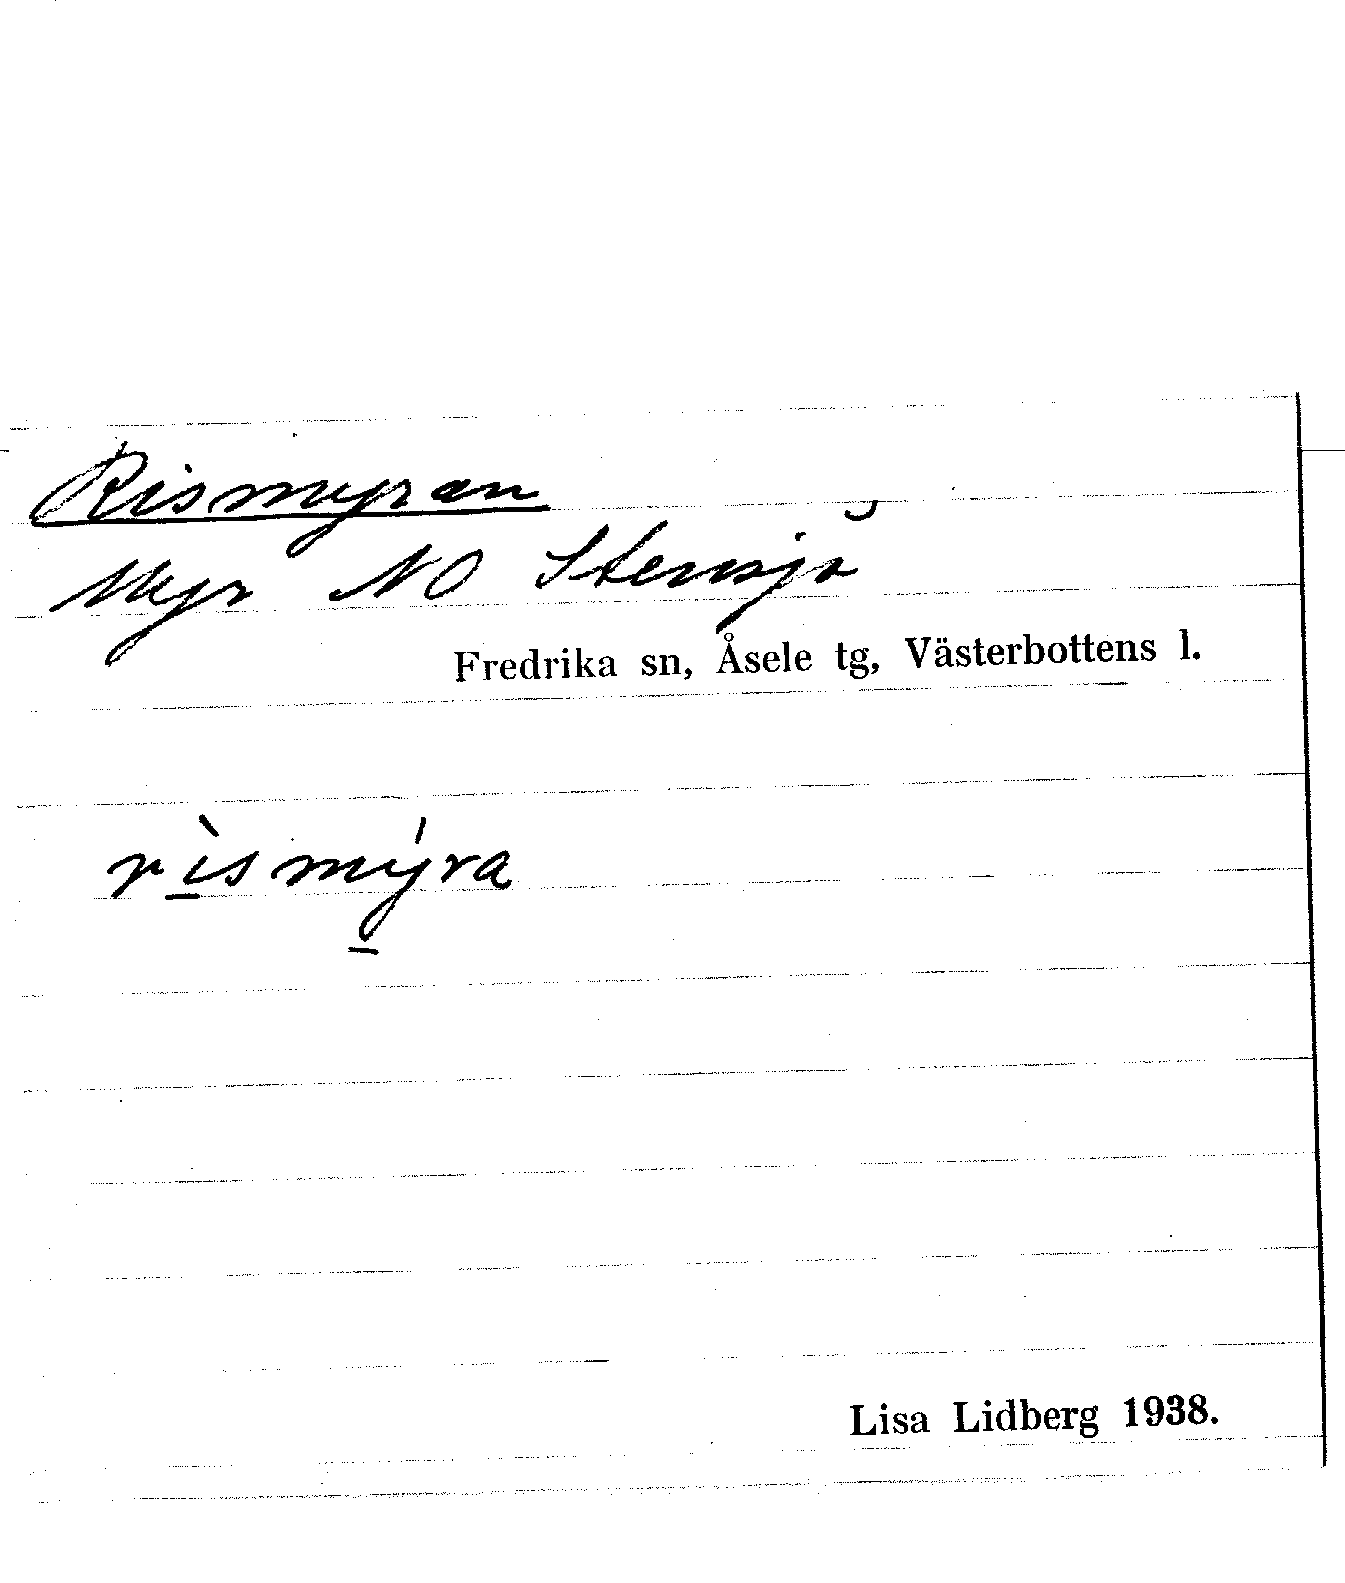 Rismyran
Myr NO Stensjö
Fredrika sn, Åsele tg, Västerbottens l.
rì̱smý̱ra
Lisa Lidberg 1938.